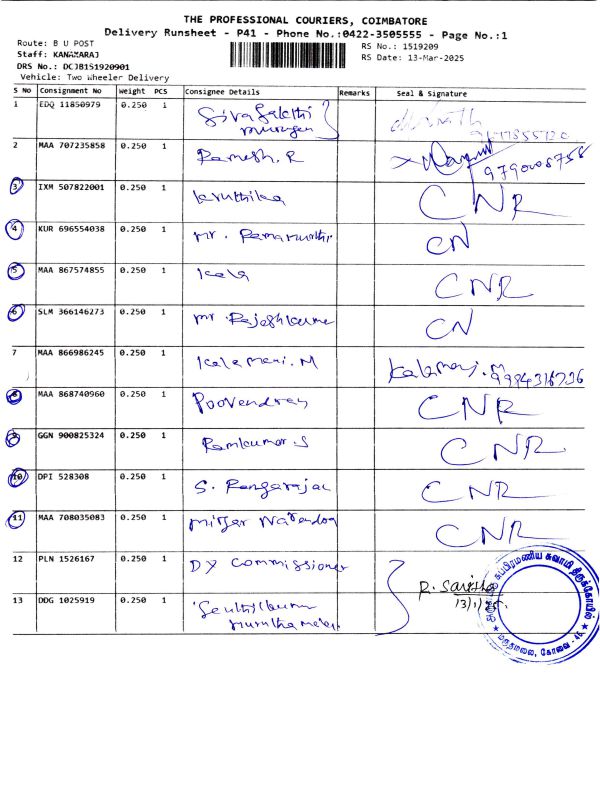 THE PROFESSIONAL COURIERS, COIMBATORE
Delivery Runsheet - P41 - Phone No.:0422-3505555 - Page No.:1
Route: B U POST
Staff: KANAKARAJ
DRS No.: DCJB151920901
Vehicle: Two Wheeler Delivery
RS No.: 1519209
RS Date: 13-Mar-2025
S No Consignment No Weight PCS Consignee Details Remarks Seal & Signature
1 EDQ 11850979 0.250 1 Sivasakthi
murugan
2 MAA 707235858 0.250 1 Ramesh.R 9790008758
3 IXM 507822001 0.250 1 Kruthika CNR
4 KUR 696554038 0.250 1 Mr. Ramamurthi CN
5 MAA 867574855 0.250 1 Kala CNR
6 SLM 366146273 0.250 1 Mr Rajeshkumar CN
7 MAA 866986245 0.250 1 Kalamani.M Kalamani.M
8 MAA 868740960 0.250 1 Poovendran CNR
9 GGN 900825324 0.250 1 Ramkumar.S CNR
10 DPI 528308 0.250 1 S. Rangarajan CNR
11 MAA 708035083 0.250 1 CNR
12 PLN 1526167 0.250 1 DY Commissioner
13 DDG 1025919 0.250 1 Senthilkumar
R. Saritha
சுப்பிரமணிய சுவாமி திருக்கோயில்
மருதமலை, கோவை - 46